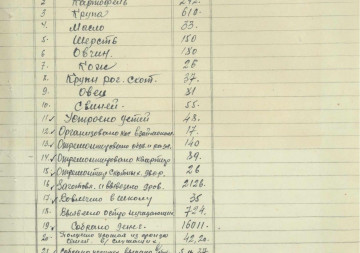 2 Картофель 242.
3 Крупа 618.
4. Масло 33.
5. Шерсть 150
6. Овчин. 180
7. Кож 26
8. Крупн рог. скот. 37.
9. Овец 81
10. Свиней. 55.
11. Устроено детей 48.
12. Организовано касс взаимопом. 17.
13. Отремонтировано обуви 140
14. Отремонтировано квартир 89.
15. скотных. двор. 26
16. Заготовл. и вывезено дров. 2126.
17. Вовлечено в школу 35
18. Выявлено остро нуждающихся 724.
19. Собрано денег. 16011.
20. 42,20.
21.